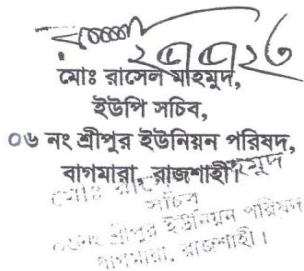 মোঃ রাসেল মাহমুদ,
ইউপি সচিব,
০৬ নং শ্রীপুর ইউনিয়ন পরিষদ,
বাগমারা, রাজশাহী।
মোঃ রাসেল মাহমুদ
সচিব
০৬নং শ্রীপুর ইউনিয়ন পরিষদ
বাগমারা, রাজশাহী।